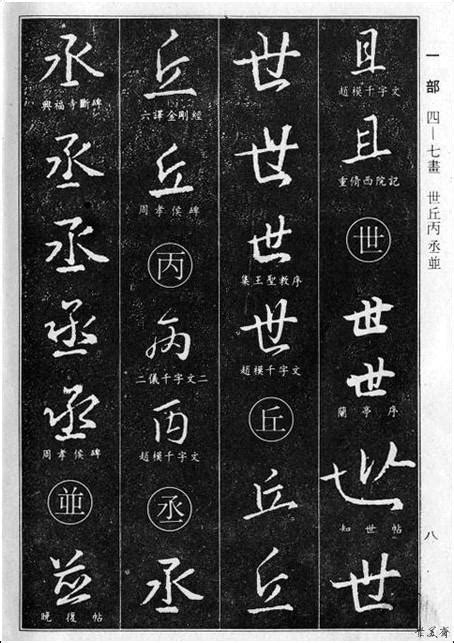 一部 四—七畫 世丘丙丞並
八
且
趙模千字文
且
重脩西院記
世
世
世
蘭亭序
世
知世帖
世
世
世
世
集王聖教序
世
趙模千字文
丘
丘
丘
丘
六譯金剛經
丘
周孝侯碑
丙
丙
二儀千字文二
丙
趙模千字文
丞
丞
丞
興福寺斷碑
丞
丞
丞
丞
周孝侯碑
並
並
晚復帖